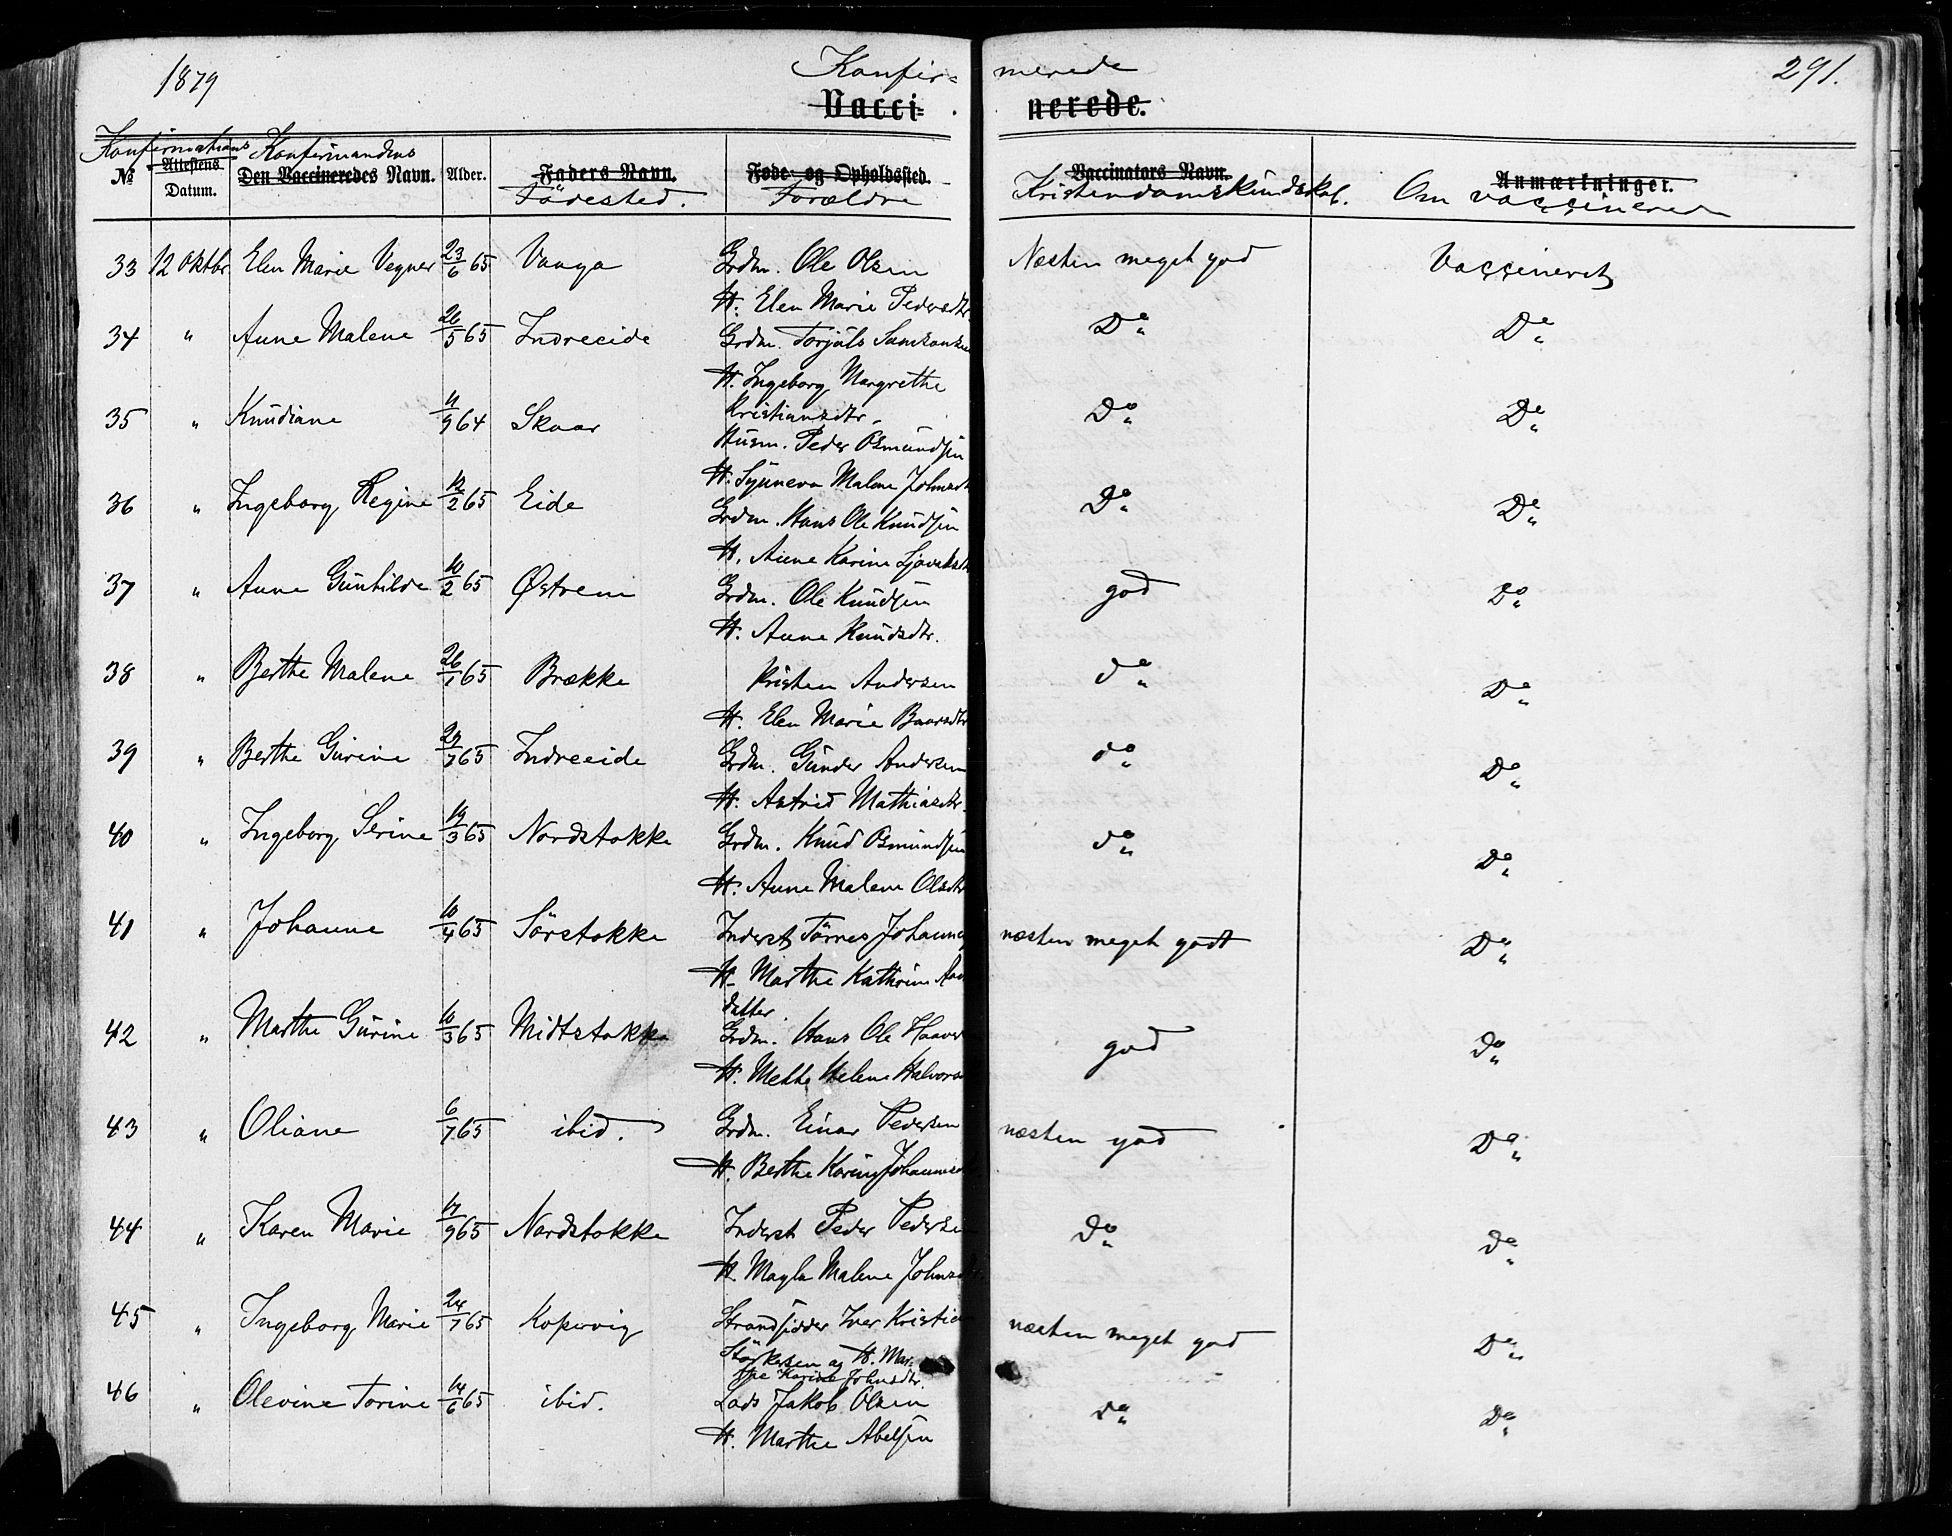 1879 Konfir- merede 291.
Vacci- nerede.
Konfirmations Konfirmandens
No Attestens Datum. Den Vaccineredes Navn. Alder. Faders Navn. Føde- og Opholdssted. Vaccinators Navn. Anmærkninger.
Födested. Forældre Kristendomskundskab. Om vaccineret
33 12 Oktbr. Elen Marie Vegner 23/6 65 Vaaga Grdm. Ole Olsen Næsten meget god Vaccineret
H. Elen Marie Pedersdtr.
34 " Anne Malene 26/5 65 Indreeide Grdm. Torjuls Samsonsen Do Do
H. Ingeborg Margrethe
Kristiansdtr.
35 " Knudiane 11/9 64 Skaar Husm. Peder Osmundsen Do Do
H. Syneva Malene Johnsdtr
36 " Ingeborg Regine 12/2 65 Eide Grdm. Hans Ole Knudsen Do Do
H. Anne Karine
37 " Anne Gunhilde 10/2 65 Østrem Grdm. Ole Knudsen god Do
H. Anne Knudsdtr.
38 " Berthe Malene 26/1 65 Brække Kristen Andersen do Do
H. Elen Marie Baarsdtr
39 " Berthe Gurine 29/7 65 Indreeide Grdm. Gunder Andersen do Do
H. Astrid Mathiasdtr.
40 " Ingeborg Serine 19/3 65 Nordstokke Grdm. Knud Osmundsen do Do
H. Anne Malene Olsdtr
41 " Johanne 10/4 65 Sörstokke Inderst Törres Johannes næsten meget godt Do
H. Marthe Kathrine
datter.
42 " Marthe Gurine 10/3 65 Midtstokke Grdm. Hans Ole Haavor god do
H. Mette Helene Halvors
43 " Oliane 6/7 65 ibid. Grdm. Einar Pedersen næsten god Do
H. Berthe Karine Johannes
44 " Karen Marie 17/9 65 Nordstokke Inderst Peder Pedersen do do
H. Magla Malene Johns
45 " Ingeborg Marie 24/7 65 Kopervig Strandsidder Iver Kristian næsten meget god Do
Störkesen og H. Mar-
the Karine Johnsdtr.
46 " Olevine Torine 14/6 65 ibid. Lods Jakob Olsen do Do
H. Marthe Abelsen